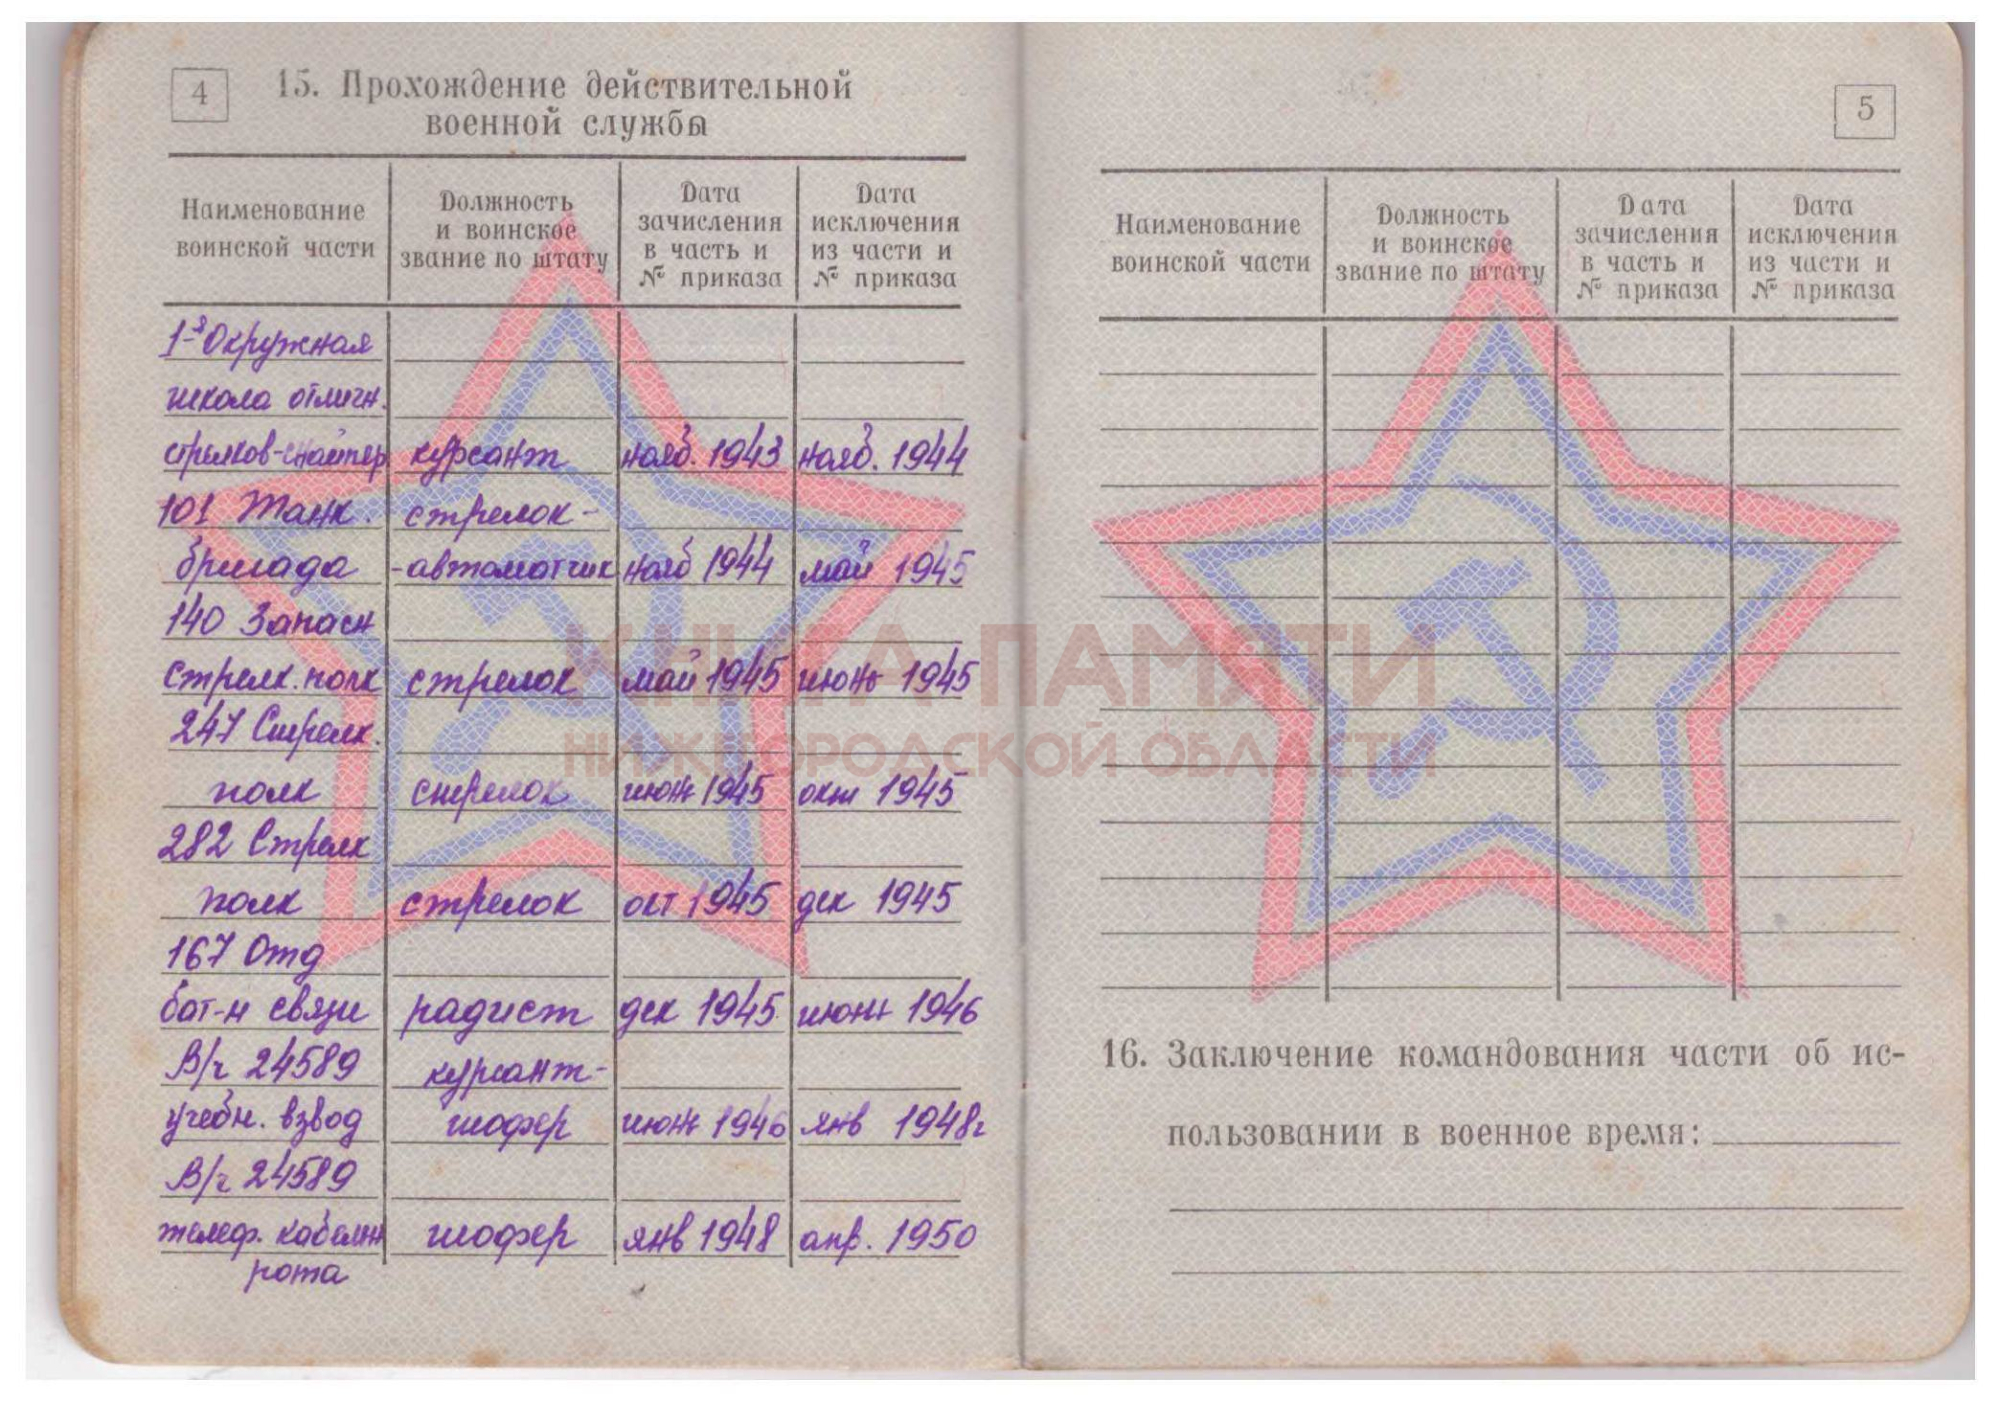 4
15. Прохождение действительной
военной службы
Наименование
воинской части
Должность
и воинское
звание по штату
Дата
зачисления
в часть и
№ приказа
Дата
исключения
из части и
№ приказа
1-я Окружная
школа отличн.
стрелков-снайпер курсант нояб. 1943 нояб. 1944
101 Танк. стрелок-
бригада -автоматчик нояб 1944 май 1945
140 Запасн
стрелк. полк стрелок май 1945 июнь 1945
247 Стрелк.
полк стрелок июнь 1945 окт 1945
282 Стрелк
полк стрелок окт 1945 дек 1945
167 Отд
бат-н связи радист дек 1945 июнь 1946
В/ч 24589 курсант-
учебн. взвод шофер июнь 1946 янв 1948г
В/ч 24589
телеф. кабельн шофер янв 1948 апр. 1950
рота
5
Наименование
воинской части
Должность
и воинское
звание по штату
Дата
зачисления
в часть и
№ приказа
Дата
исключения
из части и
№ приказа
16. Заключение командования части об ис-
пользовании в военное время:
КНИГА ПАМЯТИ
НИЖЕГОРОДСКОЙ ОБЛАСТИ